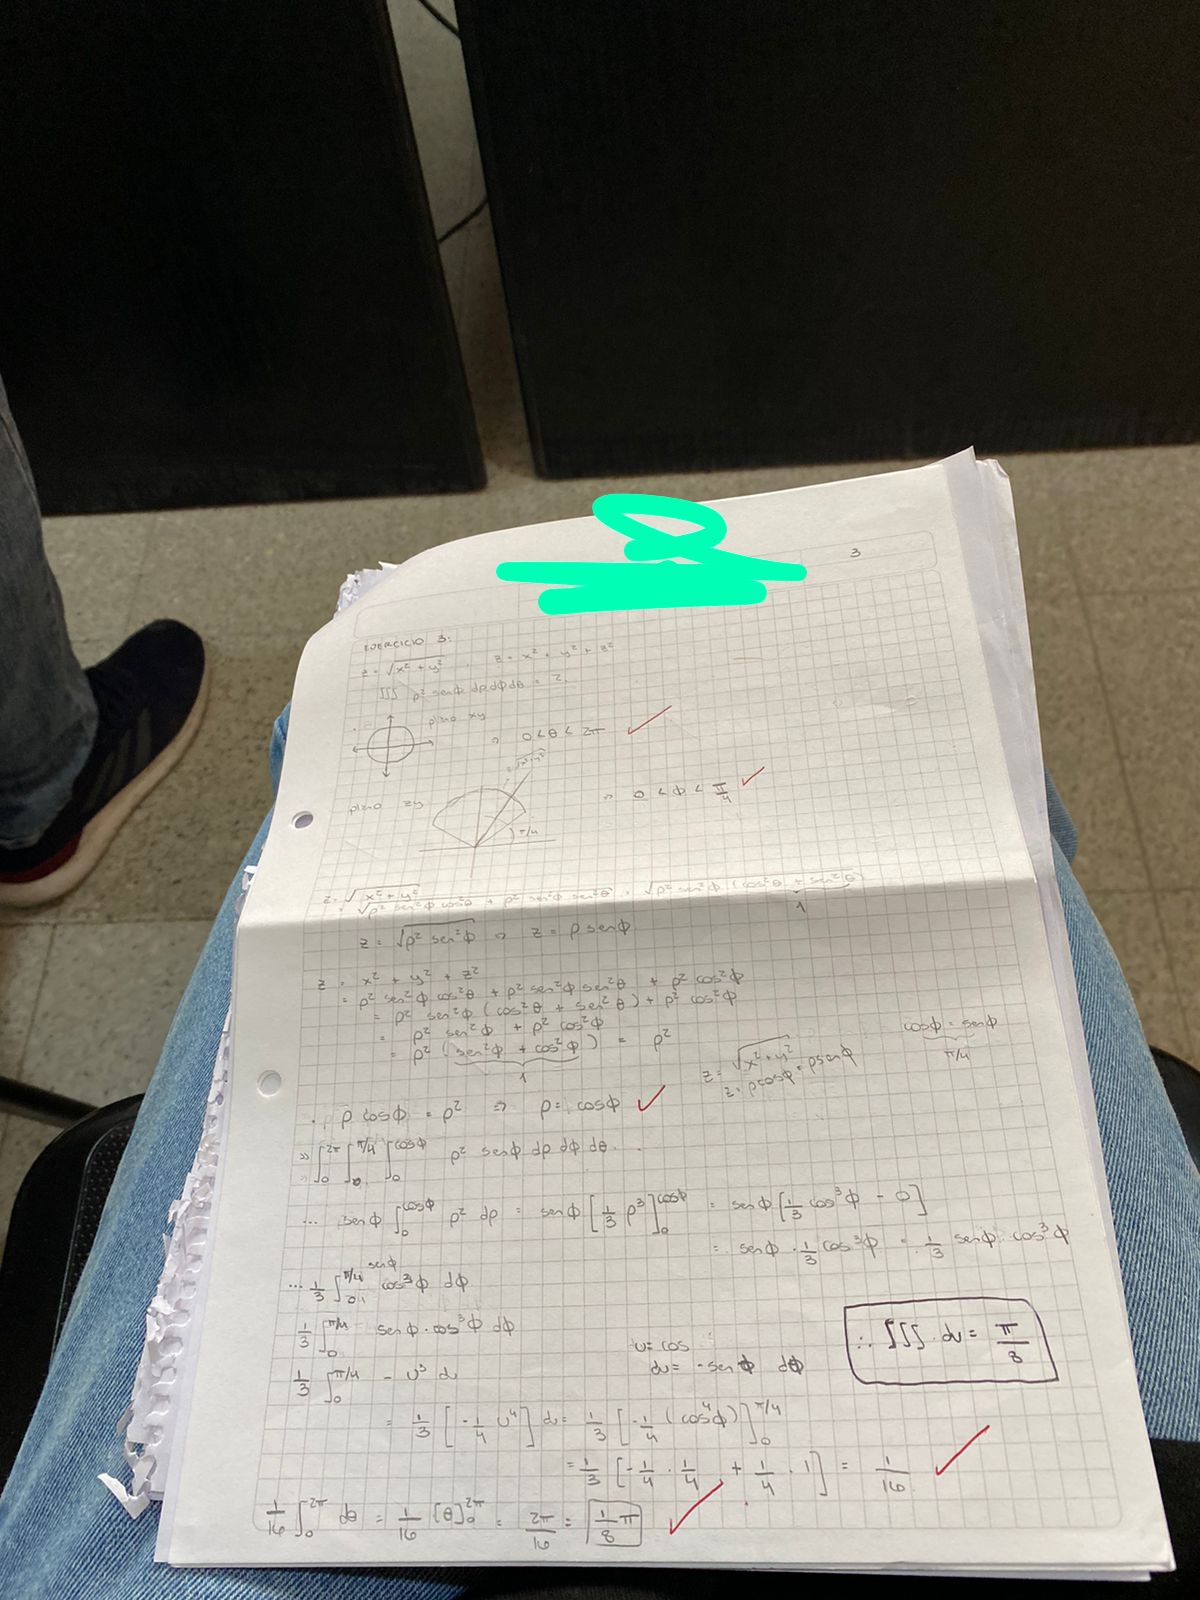 3
EJERCICIO 3:
z = √x² + y² , z = x² + y² + z²
∭ ρ² senϕ dρdϕdθ = ?
plano xy
⇒ 0 < θ < 2π
z=√x²+y²
plano zy
π/4
⇒ 0 < ϕ < π/4
z = √x² + y²
= √ρ² sen²ϕ cos²θ + ρ² sen²ϕ sen²θ = √ρ² sen²ϕ (cos²θ + sen²θ)
1
z = √ρ² sen²ϕ ⇒ z = ρ senϕ
z = x² + y² + z²
= ρ² sen²ϕ cos²θ + ρ² sen²ϕ sen²θ + ρ² cos²ϕ
= ρ² sen²ϕ (cos²θ + sen²θ) + ρ² cos²ϕ
= ρ² sen²ϕ + ρ² cos²ϕ
= ρ² (sen²ϕ + cos²ϕ) = ρ²
1
z = √x²+y²
z = ρcosϕ = ρsenϕ
cosϕ = senϕ
π/4
∴ ρ cosϕ = ρ² ⇒ ρ = cosϕ
∫₀^2π ∫₀^π/4 ∫₀^cosϕ ρ² senϕ dρ dϕ dθ
... senϕ ∫₀^cosϕ ρ² dρ = senϕ [1/3 ρ³]₀^cosϕ = senϕ [1/3 cos³ϕ - 0]
= senϕ · 1/3 cos³ϕ = 1/3 senϕ · cos³ϕ
... 1/3 ∫₀^π/4 senϕ cos³ϕ dϕ
1/3 ∫₀^π/4 senϕ · cos³ϕ dϕ
u = cos
du = -senϕ dϕ
∴ ∭ dv = π/8
1/3 ∫₀^π/4 - u³ du
= 1/3 [-1/4 u⁴] du = 1/3 [-1/4 (cos⁴ϕ)]₀^π/4
= 1/3 [-1/4 · 1/4 + 1/4 · 1] = 1/16
1/16 ∫₀^2π dθ = 1/16 [θ]₀^2π = 2π/16 = 1/8 π